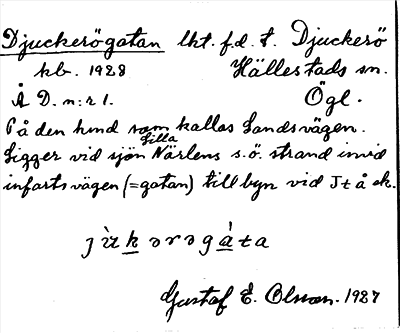 Djuckerögatan lht. f.d. t. Djuckerö
hb. 1928 Hällestads sn.
Å D. n:r 1. Ögl.
På den hund som kallas Landsvägen.
Ligger vid sjön Lilla Närlens s.ö. strand invid
infartsvägen (=gatan) till byn vid Jtå ck.
jùkərəgàta
Gustaf E. Olsson. 1927